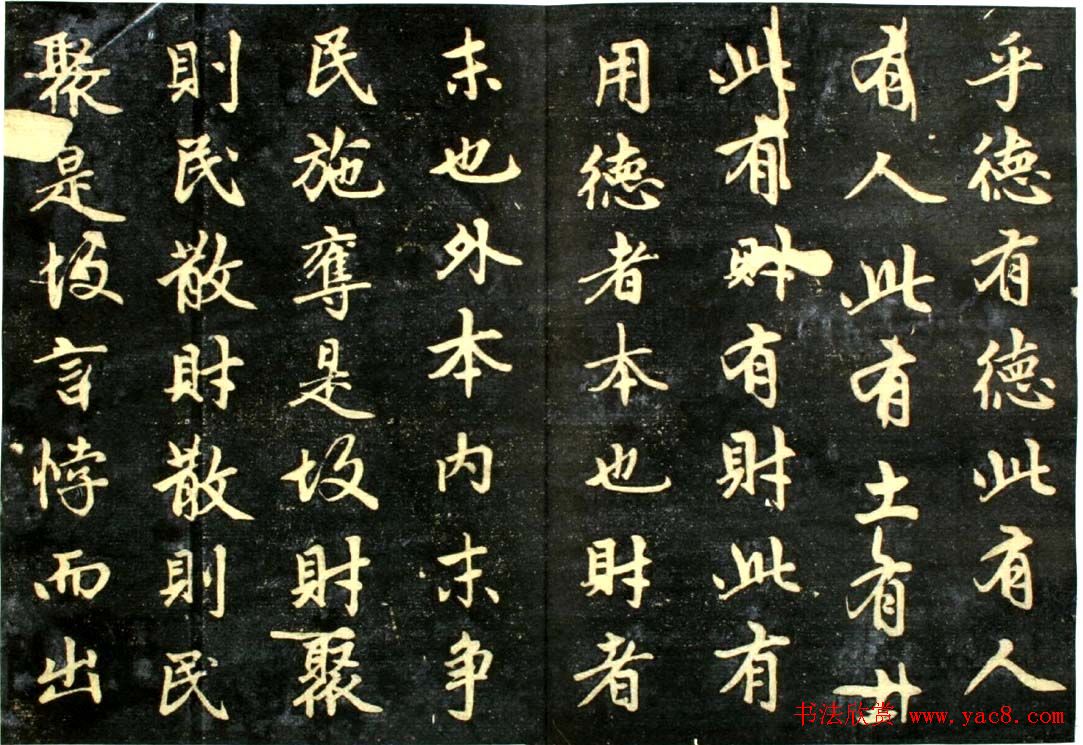 乎德有德此有人
有人此有土有
此有財有財此有
用德者本也財者
末也外本内末争
民施奪是故財聚
則民散財散則民
聚是故言悖而出
书法欣赏 www.yac8.com